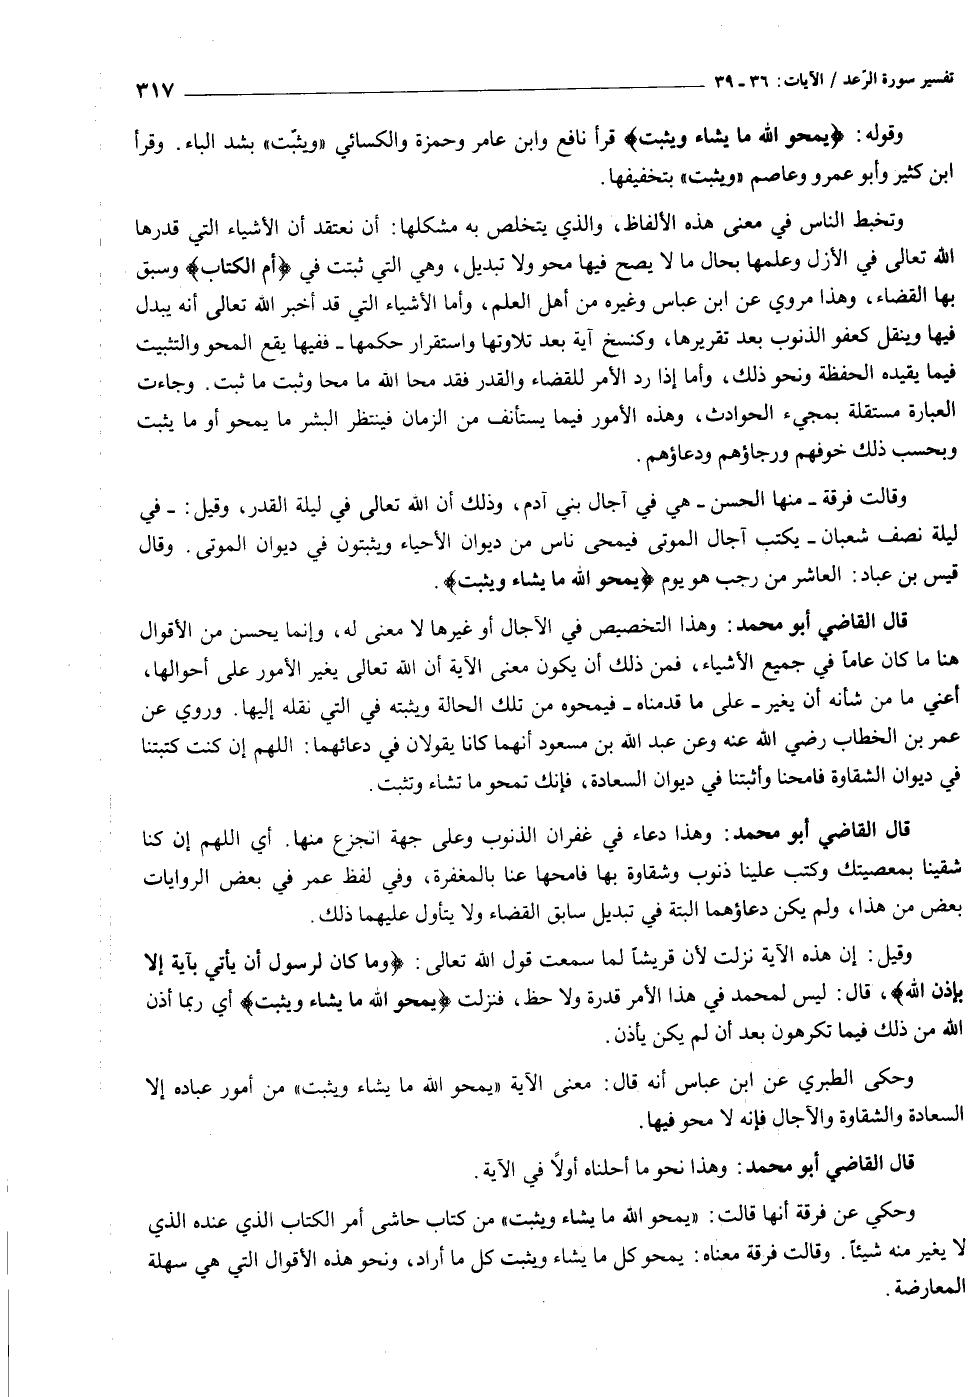 تفسير سورة الرّعد / الآيات: ٣٦ ـ ٣٩ ٣١٧
وقوله: ﴿يمحو الله ما يشاء ويثبت﴾ قرأ نافع وابن عامر وحمزة والكسائي «ويثبّت» بشد الباء. وقرأ
ابن كثير وأبو عمرو وعاصم «ويثبت» بتخفيفها.
وتخبط الناس في معنى هذه الألفاظ، والذي يتخلص به مشكلها: أن نعتقد أن الأشياء التي قدرها
الله تعالى في الأزل وعلمها بحال ما لا يصح فيها محو ولا تبديل، وهي التي ثبتت في ﴿أم الكتاب﴾ وسبق
بها القضاء، وهذا مروي عن ابن عباس وغيره من أهل العلم، وأما الأشياء التي قد أخبر الله تعالى أنه يبدل
فيها وينقل كعفو الذنوب بعد تقريرها، وكنسخ آية بعد تلاوتها واستقرار حكمها ـ ففيها يقع المحو والتثبيت
فيما يقيده الحفظة ونحو ذلك، وأما إذا رد الأمر للقضاء والقدر فقد محا الله ما محا وثبت ما ثبت. وجاءت
العبارة مستقلة بمجيء الحوادث، وهذه الأمور فيما يستأنف من الزمان فينتظر البشر ما يمحو أو ما يثبت
وبحسب ذلك خوفهم ورجاؤهم ودعاؤهم.
وقالت فرقة ـ منها الحسن ـ هي في آجال بني آدم، وذلك أن الله تعالى في ليلة القدر، وقيل: ـ في
ليلة نصف شعبان ـ يكتب آجال الموتى فيمحى ناس من ديوان الأحياء ويثبتون في ديوان الموتى. وقال
قيس بن عباد: العاشر من رجب هو يوم ﴿يمحو الله ما يشاء ويثبت﴾.
قال القاضي أبو محمد: وهذا التخصيص في الآجال أو غيرها لا معنى له، وإنما يحسن من الأقوال
هنا ما كان عاماً في جميع الأشياء، فمن ذلك أن يكون معنى الآية أن الله تعالى يغير الأمور على أحوالها،
أعني ما من شأنه أن يغير ـ على ما قدمناه ـ فيمحوه من تلك الحالة ويثبته في التي نقله إليها. وروي عن
عمر بن الخطاب رضي الله عنه وعن عبد الله بن مسعود أنهما كانا يقولان في دعائهما: اللهم إن كنت كتبتنا
في ديوان الشقاوة فامحنا وأثبتنا في ديوان السعادة، فإنك تمحو ما تشاء وتثبت.
قال القاضي أبو محمد: وهذا دعاء في غفران الذنوب وعلى جهة انجزع منها. أي اللهم إن كنا
شقينا بمعصيتك وكتب علينا ذنوب وشقاوة بها فامحها عنا بالمغفرة، وفي لفظ عمر في بعض الروايات
بعض من هذا، ولم يكن دعاؤهما البتة في تبديل سابق القضاء ولا يتأول عليهما ذلك.
وقيل: إن هذه الآية نزلت لأن قريشاً لما سمعت قول الله تعالى: ﴿وما كان لرسول أن يأتي بآية إلا
بإذن الله﴾، قال: ليس لمحمد في هذا الأمر قدرة ولا حظ، فنزلت ﴿يمحو الله ما يشاء ويثبت﴾ أي ربما أذن
الله من ذلك فيما تكرهون بعد أن لم يكن يأذن.
وحكى الطبري عن ابن عباس أنه قال: معنى الآية «يمحو الله ما يشاء ويثبت» من أمور عباده إلا
السعادة والشقاوة والآجال فإنه لا محو فيها.
قال القاضي أبو محمد: وهذا نحو ما أحلناه أولاً في الآية.
وحكي عن فرقة أنها قالت: «يمحو الله ما يشاء ويثبت» من كتاب حاشى أمر الكتاب الذي عنده الذي
لا يغير منه شيئاً. وقالت فرقة معناه: يمحو كل ما يشاء ويثبت كل ما أراد، ونحو هذه الأقوال التي هي سهلة
المعارضة.